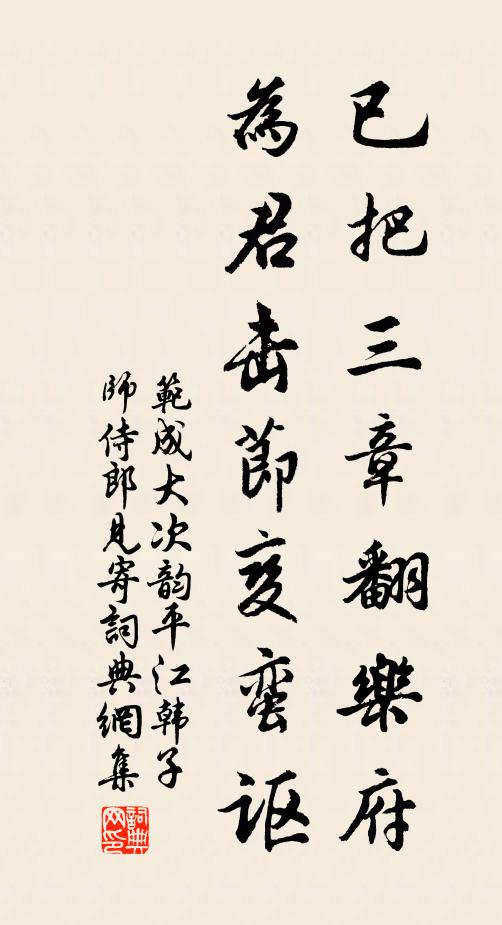 已把三章翻樂府
為君击節变蛮讴
範成大次韵平江韩子
師侍郎見寄詞典網集
詞典網印